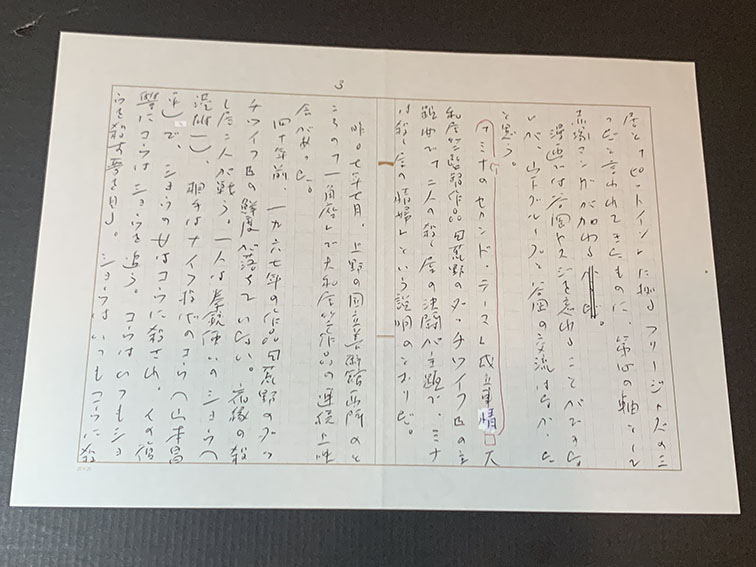 3
フリージャズの三
つだと言われてきたものに、第四の軸として
赤塚マンガが加わる。
漫画では谷岡ヤスジを忘れることができな
いが、山下グループと谷岡の交流はなかった
と思う。
「ミナのセカンド・テーマ」成立事情 大
和屋竺監督作品『荒野のダッチワイフ』の主
題曲で、二人の殺し屋の決闘が主題で、ミナ
は殺し屋の情婦、という説明のとおりだ。
昨〇七年七月、上野の国立美術館西隣のと
ころの「一角座」で大和屋竺作品の連続上映
会があった。
四十年前、一九六七年の作品『荒野のダッ
チワイフ』の鮮度が落ちていない。宿縁の殺
し屋二人が戦う。一人は拳銃使いのショウ（
港雄一）、相手はナイフ投げのコウ（山本昌
平）で、ショウの女はコウに殺され、その復
讐にコウはショウを追う。コウはいつもショ
ウを殺す夢を見る。ショウはいつもコウに殺